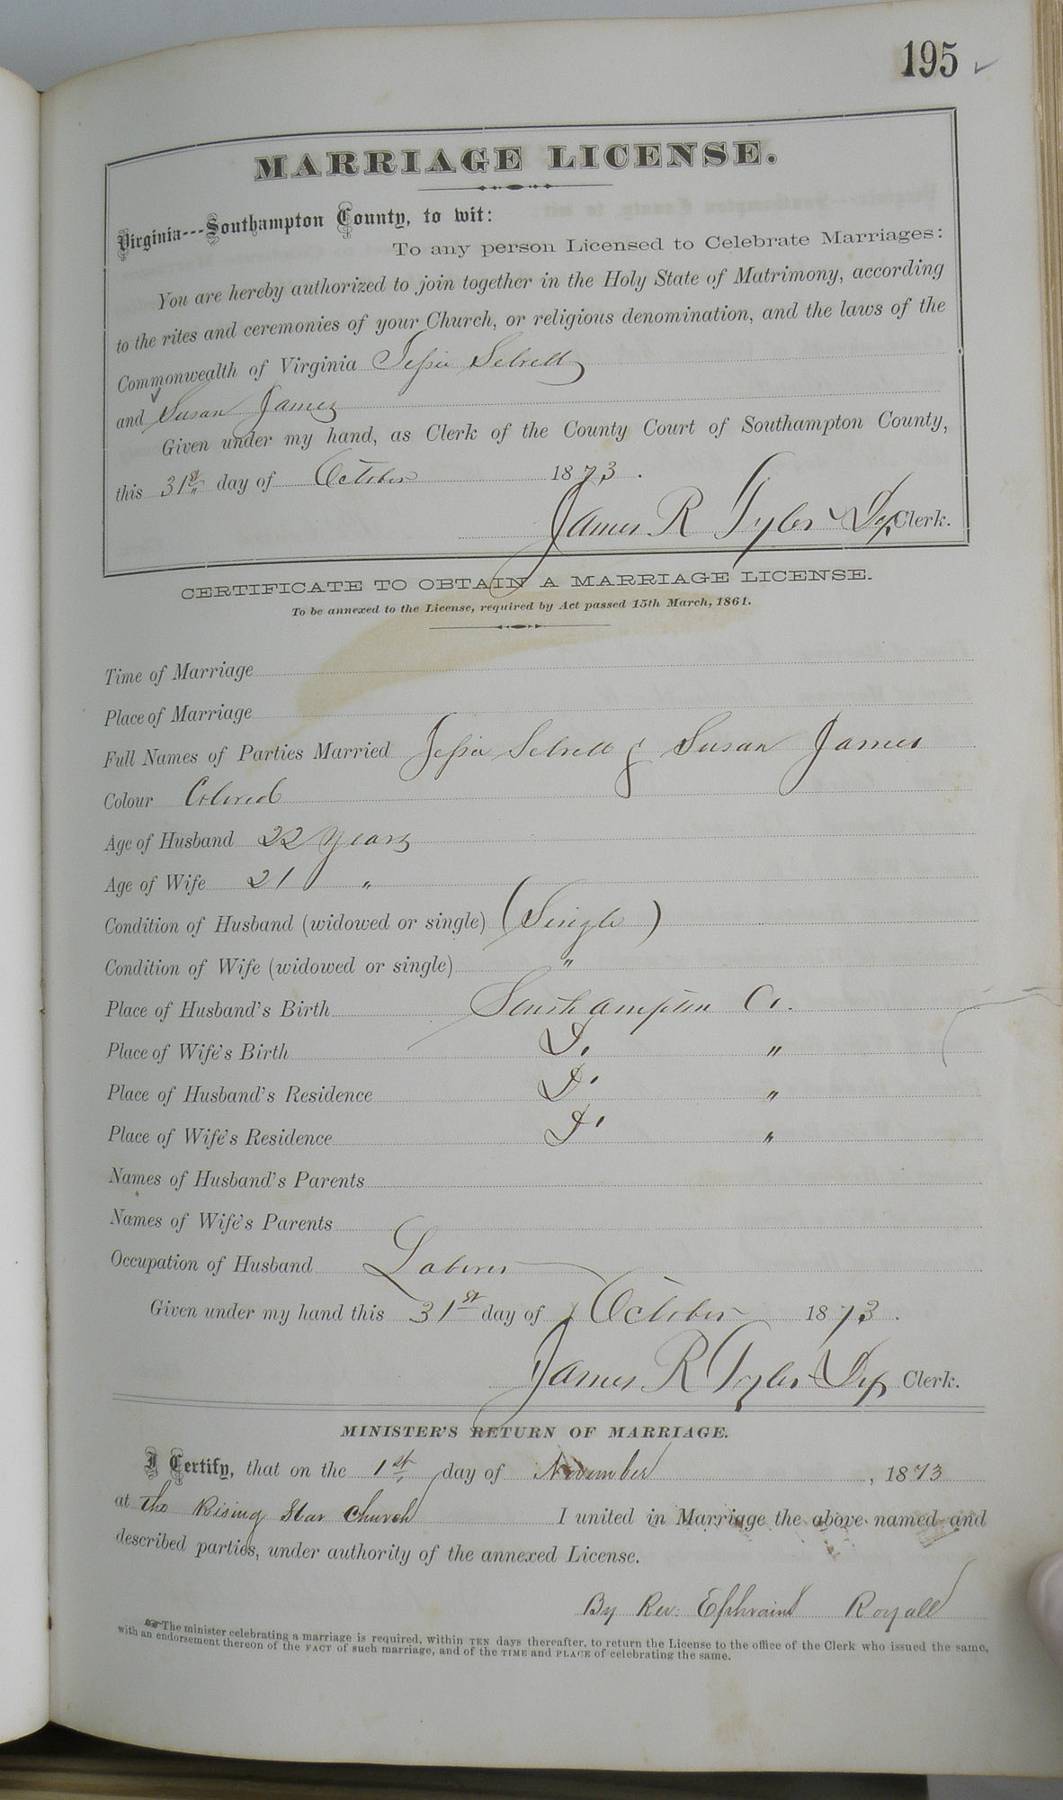 195
MARRIAGE LICENSE.
Virginia---Southampton County, to wit:
To any person Licensed to Celebrate Marriages:
You are hereby authorized to join together in the Holy State of Matrimony, according
to the rites and ceremonies of your Church, or religious denomination, and the laws of the
Commonwealth of Virginia Jessie Sebrell
and Susan James
Given under my hand, as Clerk of the County Court of Southampton County,
this 31st day of October 1873.
James R Tyler Dep Clerk.
CERTIFICATE TO OBTAIN A MARRIAGE LICENSE.
To be annexed to the License, required by Act passed 15th March, 1861.
Time of Marriage
Place of Marriage
Full Names of Parties Married Jessie Sebrell & Susan James
Colour Colored
Age of Husband 22 Years
Age of Wife 21 "
Condition of Husband (widowed or single) (Single)
Condition of Wife (widowed or single) "
Place of Husband's Birth Southampton Co.
Place of Wife's Birth Do. "
Place of Husband's Residence Do. "
Place of Wife's Residence Do. "
Names of Husband's Parents
Names of Wife's Parents
Occupation of Husband Laborer
Given under my hand this 31st day of October 1873.
James R Tyler Dep Clerk.
MINISTER'S RETURN OF MARRIAGE.
I Certify, that on the 1st day of November, 1873
at The Rising Star Church I united in Marriage the above named and
described parties, under authority of the annexed License.
By Rev. Ephraim Royall
The minister celebrating a marriage is required, within TEN days thereafter, to return the License to the office of the Clerk who issued the same,
with an endorsement thereon of the FACT of such marriage, and of the TIME and PLACE of celebrating the same.